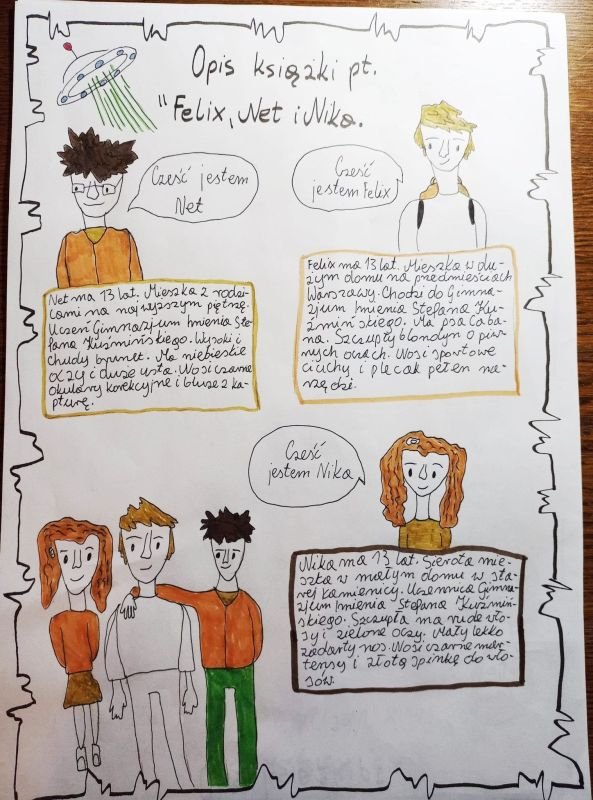 Opis książki pt.
"Felix, Net i Nika.
Cześć jestem
Net
Cześć
jestem Felix
Net ma 13 lat. Mieszka z rodzi-
cami na najwyższym piętrze.
Uczeń Gimnazjum Imienia Ste-
fana Kuźmińskiego. Wysoki i
chudy brunet. Ma niebieskie
oczy i duże usta. Wosi czarne
okulary korekcyjne i bluzę z ka-
pturę.
Felix ma 13 lat. Mieszka w du-
żym domu na przedmieściach
Warszawy. Chodzi do Gimna-
zjum Imienia Stefana Kuź-
mińskiego. Ma psa Caba-
na. Szczupły blondyn o piw-
nych oczach. Wosi sportowe
ciuchy i plecak pełen na-
rzędzi.
Cześć
jestem Nika
Nika ma 13 lat. Sierota mie-
szka w małym domu w sta-
rej kamienicy. Uczennica Gimna-
zjum Imienia Stefana Kuźmiń-
skiego. Szczupła ma rude wło-
sy i zielone oczy. Mały lekko
zadarty nos. Wosi czarne mar-
tensy i złotą spinkę do wło-
sów.